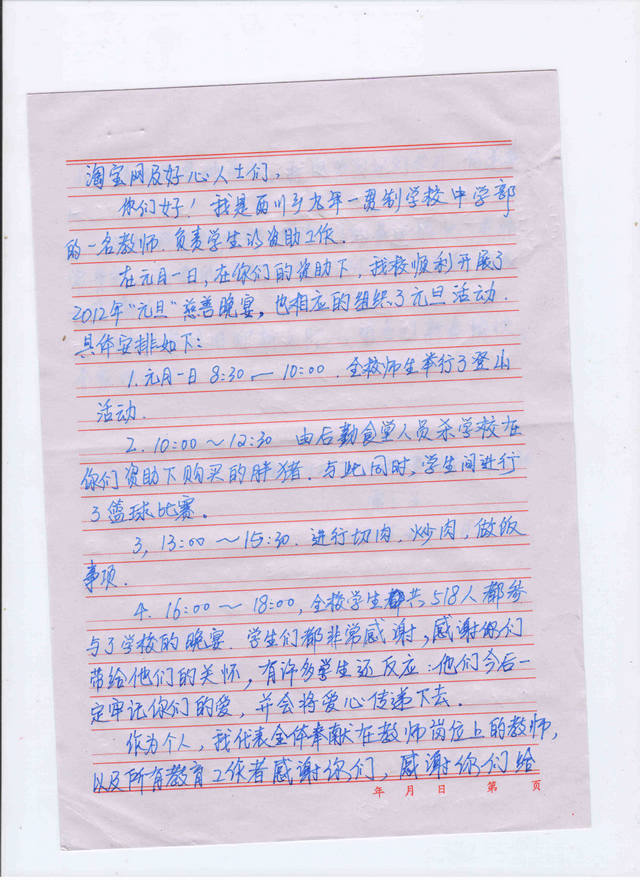 淘宝网及好心人士们,
你们好！我是西川乡九年一贯制学校中学部
的一名教师.负责学生的资助工作.
在元月一日,在你们的资助下,我校顺利开展了
2012年“元旦”慈善晚宴,也相应的组织了元旦活动.
具体安排如下:
1.元月一日 8:30 — 10:00 .全校师生举行了登山
活动.
2. 10:00～12:30 由后勤食堂人员杀学校在
你们资助下购买的胖猪.与此同时,学生间进行
了篮球比赛.
3, 13:00 ～ 15:30. 进行切肉.炒肉,做饭
事项.
4. 16:00 ～ 18:00,全校学生共518人都参
与了学校的晚宴.学生们都非常感谢,感谢你们
带给他们的关怀,有许多学生还反应:他们今后一
定牢记你们的爱,并会将爱心传递下去.
作为个人,我代表全体奉献在教师岗位上的教师,
以及所有教育工作者感谢你们,感谢你们给
年 月 日 第 页